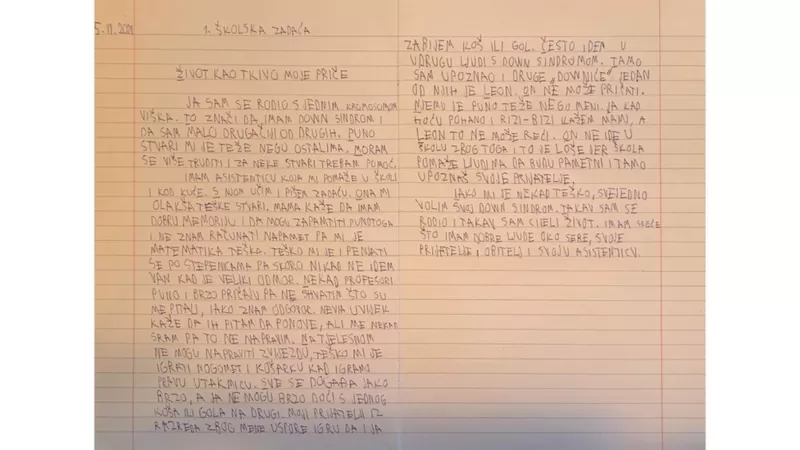 5.11.2021
1. ŠKOLSKA ZADAĆA
ŽIVOT KAO TKIVO MOJE PRIČE
JA SAM SE RODIO S JEDNIM KROMOSOMOM
VIŠKA. TO ZNAČI DA IMAM DOWN SINDROM I
DA SAM MALO DRUGAČIJI OD DRUGIH. PUNO
STVARI MI JE TEŽE NEGO OSTALIMA. MORAM
SE VIŠE TRUDITI I ZA NEKE STVARI TREBAM POMOĆ.
IMAM ASISTENTICU KOJA MI POMAŽE U ŠKOLI
I KOD KUĆE. S NJOM UČIM I PIŠEM ZADAĆU. ONA MI
OLAKŠA TEŠKE STVARI. MAMA KAŽE DA IMAM
DOBRU MEMORIJU I DA MOGU ZAPAMTITI PUNO TOGA
I NE ZNAM RAČUNATI NAPAMET PA MI JE
MATEMATIKA TEŠKO. TEŠKO MI JE I PENJATI
SE PO STEPENICAMA PA SKORO NIKAD NE IDEM
VAN KAD JE VELIKI ODMOR. NEKAD PROFESORI
PUNO I BRZO PRIČAJU PA NE SHVATIM ŠTO SU
ME PITALI, IAKO ZNAM ODGOVOR. NEVIA UVIJEK
KAŽE DA IH PITAM DA PONOVE, ALI ME NEKAD
SRAM PA TO NE NAPRAVIM. NA TJELESNOM
NE MOGU NAPRAVITI ZVIJEZDU, TEŠKO MI JE
IGRATI NOGOMET I KOŠARKU KAD IGRAMO
PRAVU UTAKMICU. SVE SE DOGAĐA JAKO
BRZO, A JA NE MOGU BRZO DOĆI S JEDNOG
KOŠA ILI GOLA NA DRUGI. MOJI PRIJATELJI IZ
RAZREDA ZBOG MENE USPORE IGRU DA I JA
ZABIJEM KOŠ ILI GOL. ČESTO IDEM U
UDRUGU LJUDI S DOWN SINDROMOM. TAMO
SAM UPOZNAO I DRUGE „DOWNIĆE“ JEDAN
OD NJIH JE LEON. ON NE MOŽE PRIČATI.
NJEMU JE PUNO TEŽE NEGO MENI. JA KAD
HOĆU POHANO I RIZI-BIZI KAŽEM MAMI, A
LEON TO NE MOŽE REĆI. ON NE IDE U
ŠKOLU ZBOG TOGA I TO JE LOŠE JER ŠKOLA
POMAŽE LJUDIMA DA BUDU PAMETNI I TAMO
UPOZNAŠ SVOJE PRIJATELJE.
IAKO MI JE NEKAD TEŠKO, SVEJEDNO
VOLIM SVOJ DOWN SINDROM. TAKAV SAM SE
RODIO I TAKAV SAM CIJELI ŽIVOT. IMAM SREĆE
ŠTO IMAM DOBRE LJUDE OKO SEBE, SVOJE
PRIJATELJE I OBITELJ I SVOJU ASISTENTICU.